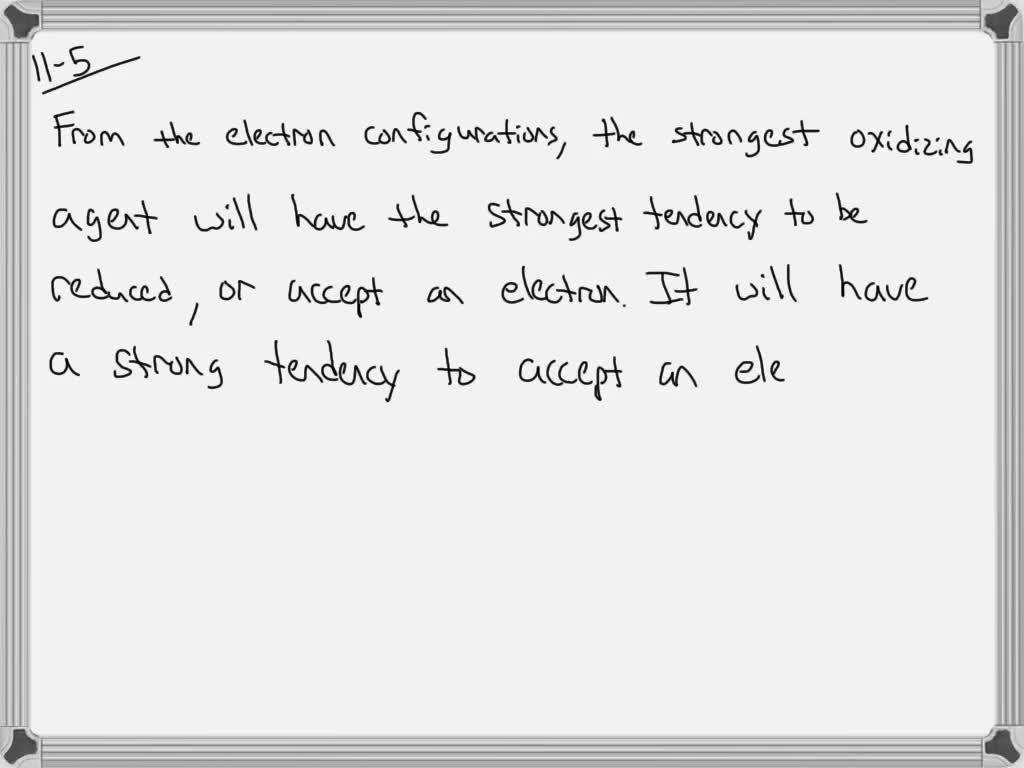 11-5
From the electron configurations, the strongest oxidizing
agent will have the strongest tendency to be
reduced, or accept an electron. It will have
a strong tendency to accept an ele